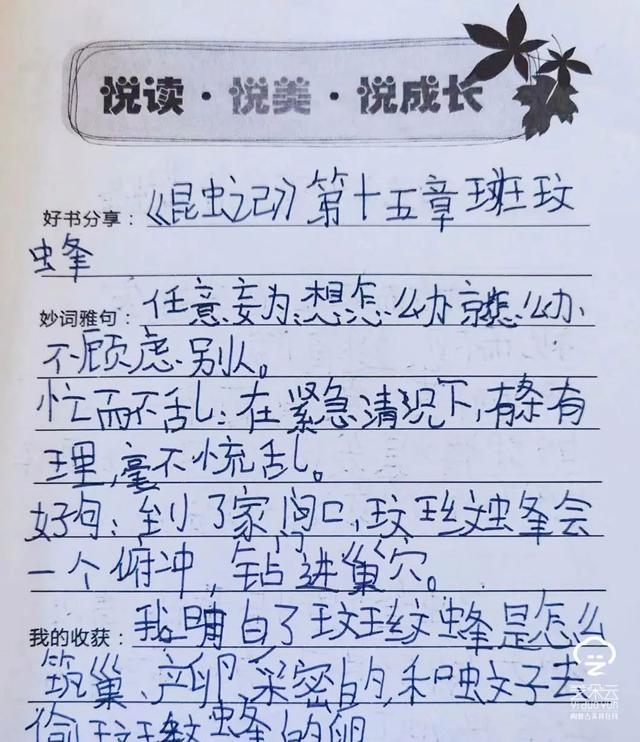 悦读·悦美·悦成长
好书分享：《昆虫记》第十五章斑纹
蜂
妙词雅句：任意妄为：想怎么办就怎么办
不顾虑别人。
忙而不乱：在紧急清况下，有条有
理，毫不慌乱。
好句：到了家门口，玟纹蜂会
一个俯冲，钻进巢穴。
我的收获：我明白了玟纹蜂是怎么
筑巢、产卵、采密的，和蚊子去
偷玟纹蜂的卵
朵云
Yi duo yun